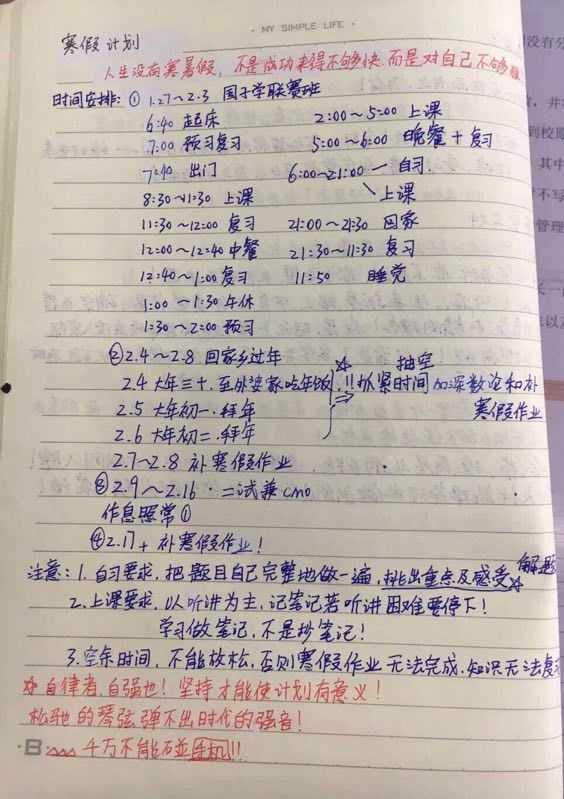 · MY SIMPLE LIFE ·
寒假计划
人生没有寒暑假，不是成功来得不够快，而是对自己不够狠
时间安排：① 1.27～2.3 国子学联赛班
6:40 起床 2:00～5:00 上课
7:00 预习复习 5:00～6:00 晚餐＋复习
7:40 出门 6:00～21:00 一自习
8:30～11:30 上课 \上课
11:30～12:00 复习 21:00～21:30 回家
12:00～12:40 中餐 21:30～11:30 复习
12:40～1:00 复习 11:50 睡觉
1:00～1:30 午休
1:30～2:00 预习
② 2.4～2.8 回家乡过年 ☆ 抽空
2.4 大年三十，至外婆家吃年饭，!! 抓紧时间 加深数论和补
2.5 大年初一，拜年 ⇒ 寒假作业
2.6 大年初二，拜年
2.7～2.8 补寒假作业
③ 2.9～2.16 · 二试兼cmo
作息照常①
④ 2.17＋ 补寒假作业！
注意：1. 自习要求，把题目自己完整地做一遍，挑出重点及感受☆解题
2. 上课要求，以听讲为主，记笔记若听讲困难要停下！
学习做笔记，不是抄笔记！
3. 空余时间，不能放松，否则寒假作业无法完成，知识无法复
☆ 自律者，自强也！坚持才能使计划有意义！
松弛的琴弦弹不出时代的强音！
·B· 千万不能碰手机!!
没有分
到校原
其中
管理